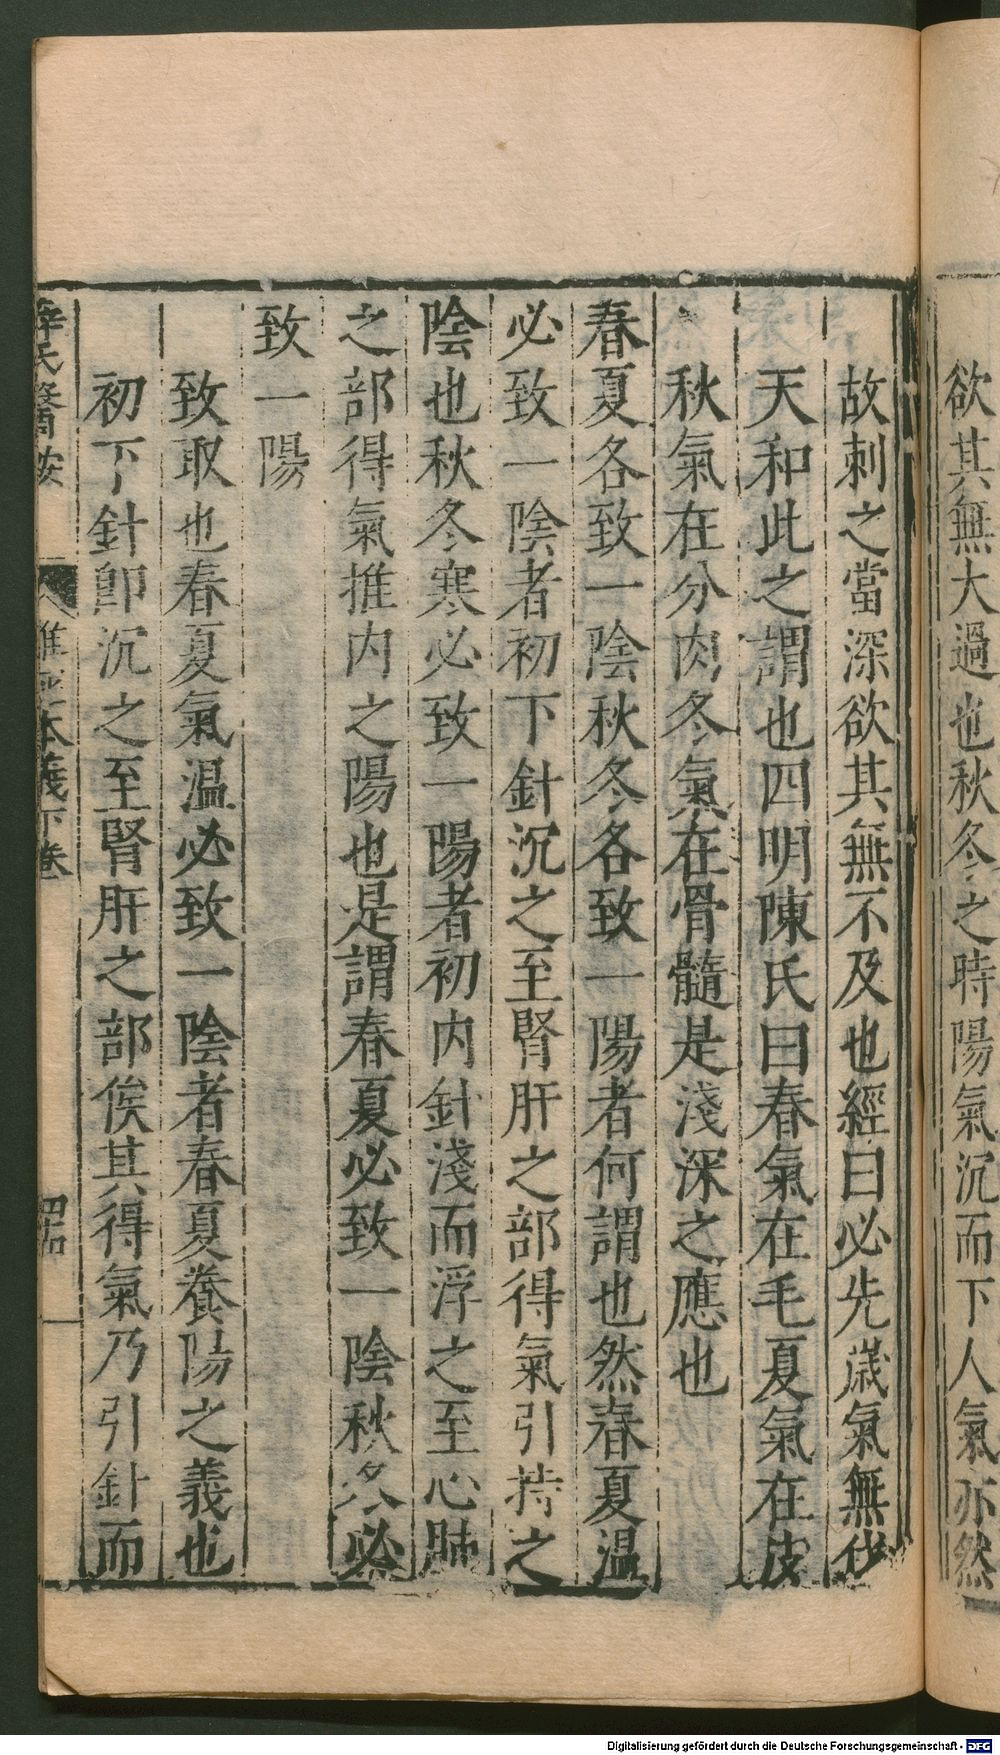 欲其無大過也秋冬之時陽氣沉而下人氣亦然
故刺之當深欲其無不及也經曰必先歲氣無伐
天和此之謂也四明陳氏曰春氣在毛夏氣在皮
秋氣在分肉冬氣在骨髓是淺深之應也
春夏各致一陰秋冬各致一陽者何謂也然春夏温
必致一陰者初下針沉之至腎肝之部得氣引持之
陰也秋冬寒必致一陽者初内針淺而浮之至心肺
之部得氣推内之陽也是謂春夏必致一陰秋冬必
致一陽
致取也春夏氣温必致一陰者春夏養陽之義也
初下針即沉之至腎肝之部俟其得氣乃引針而
薛氏醫按
難經本義下卷
Digitalisierung gefördert durch die Deutsche Forschungsgemeinschaft - DFG